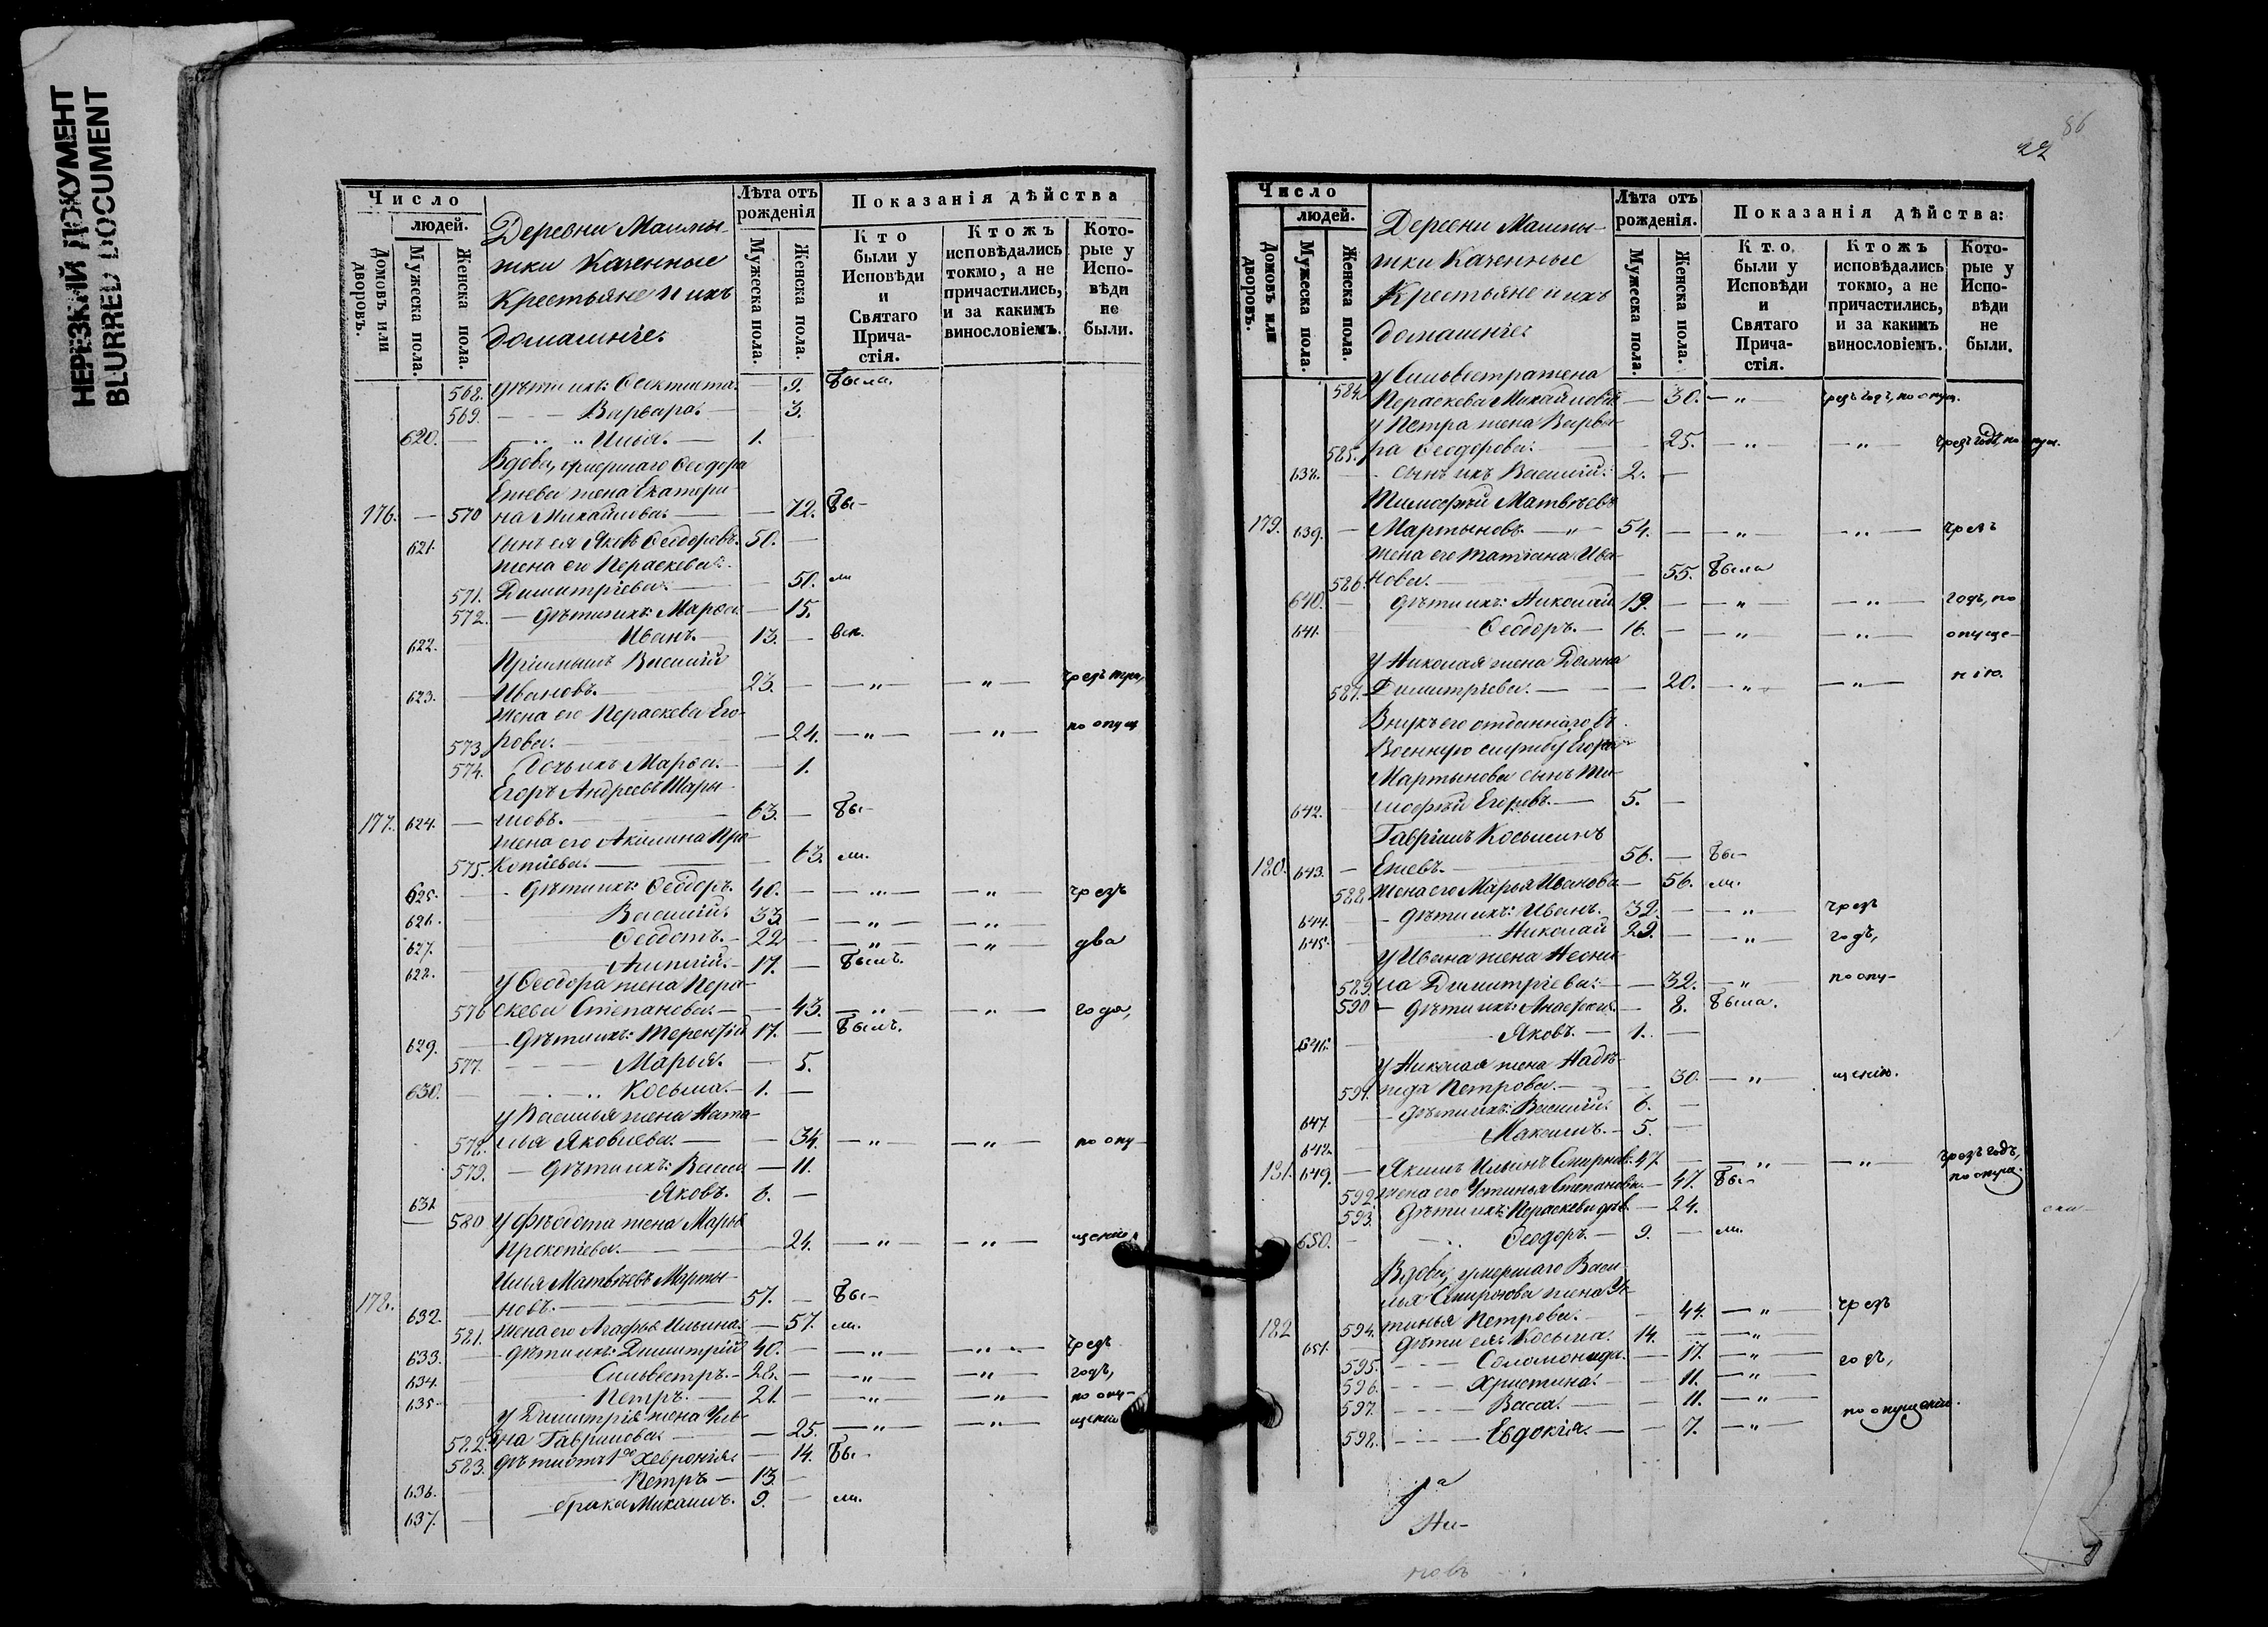 НЕРЕЗКИЙ ДОКУМЕНТ
BLURRED DOCUMENT
Число
людей.
Домовъ или дворовъ.
Мужеска пола.
Женска пола.
Деревни
Казенные
Крестьяне и ихъ
домашніе:
Лѣта отъ рожденія
Мужеска пола.
Женска пола.
Показанія дѣйства
Кто были у Исповѣди и Святаго Причастія.
Ктожъ исповѣдались токмо, а не причастились, и за какимъ винословіемъ.
Которые у Исповѣди не были.
568. дѣти ихъ: Феоктиста. — 9. Была.
569. — — Варвара. — 3.
620. — „ „ Илья. — 1. —
Вдова, умершаго Феодора
жена Екатери-
176. — 570 на Михайлова. — — 72. Бы-
621. сынъ ея Яковъ Феодоровъ. 50. —
жена его Параскева
571. Димитріева. — 50. ли
572. — дѣти ихъ: Марѳа — 15.
622. Иванъ. — 13. — всп.
Пріимышъ Василій
623. — Ивановъ. 23. — — „ — — „ — чрезъ
жена его Параскева Его-
573. рова. — 24. — „ — — „ — по опущ
574. Дочь ихъ Марѳа. — 1.
Егоръ Андреевъ Шары-
177. 624. — повъ. 63. — Бы-
жена его Акилина Про-
575. копіева. — 63. ли.
625. — дѣти ихъ: Феодоръ. 40. — — „ — — „ чрезъ
626. Василій. 33 — — „ — — „ —
627. Феодотъ. — 22 — — „ — — „ два
628. — 17. — Былъ.
у Феодора жена Пара-
576 скева Степанова. — 43. — „ — — „ года,
629. — дѣти ихъ: Терентій 17. — Былъ.
577. — Марья. — 5.
630. — „ Косьма. — 1. —
у Василья жена Ната-
578. лья Яковлева. — — 34. — „ — — „ — по опу-
579. — дѣти ихъ: Васса — 11.
631. Яковъ. 6. —
580 у Ѳеодота жена Марья
Прокопіева. — 24. — „ — — „ — щенію.
Илья Матвѣевъ Марты-
178. 632. — новъ. 57. — Бы-
581. жена его Агафья Ильина. — 57. ли.
633. — дѣти ихъ: Димитрій 40. — — „ — — „ — чрезъ
634. Сильвестръ. — 28. — — „ — — „ — годъ,
635 — Петръ. — 21. — — „ — — „ — по опу-
у Димитрія жена Улья-
582. на Гаврилова. — — 25. — „ — — „ — щенію
583. дѣти отъ 1го Хевронія. — 14. Бы-
636. Петръ — 13. —
637. — брака Михаилъ. 9. — ли.
86
22
Число
людей.
Домовъ или дворовъ.
Мужеска пола.
Женска пола.
Деревни
Казенные
Крестьяне и ихъ
домашніе:
Лѣта отъ рожденія.
Мужеска пола.
Женска пола.
Показанія дѣйства:
Кто были у Исповѣди и Святаго Причастія.
Ктожъ исповѣдались токмо, а не причастились, и за какимъ винословіемъ.
Которые у Исповѣди не были.
у Сильвестра жена
584. Параскева Михайлова — 30. — „ чрезъ годъ, по опущ.
у Петра жена Варва-
585. ра Феодорова. — 25. — „ — „ — чрезъ годъ, по опущ.
638. — сынъ ихъ Василій. 2. —
Тимофей Матвѣевъ
179. 639. — Мартыновъ — „ — 54. — — „ — — „ — чрезъ
жена его Татіана Ива-
586. нова. — 55. Была
640. — дѣти ихъ: Николай 19. — — „ — „ — годъ, по
641. — Феодоръ. — 16. — — „ — — „ — опуще-
у Николая жена
587. Димитріева. — — 20. — „ — — „ — нію.
Внукъ его отданнаго въ
Военную службу Егора
Мартынова сынъ Ти-
642. — мофей Егоровъ. — 5. —
Гавріилъ Косьминъ
180. 643. — 56. — Бы-
588. жена его Марья Иванова — 56. ли.
644. — дѣти ихъ: Иванъ. 32. — — „ чрезъ
645. — Николай 29. — — „ годъ,
у Ивана жена Неони-
589. ла Димитріева. — — 32. — „ по опу-
590 — дѣти ихъ: — 8. Была.
646. — Яковъ. — 1. —
у Николая жена Надѣ-
591. жда Петрова. — — 30. — „ — щенію.
647. — дѣти ихъ: Василій. 6. —
648. Максимъ. — 5. —
181. 649. — Якимъ Ильинъ Смирновъ. 47. — — „ — — „ — чрезъ годъ, по опущ.
592. жена его Устинья Степанова. — 47. Бы-
593. дѣти ихъ: Параскева дѣв. — 24.
650. — „ Феодоръ. — 9. — ли.
Вдова, умершаго Васи-
лья Смирнова жена Ус-
182 594. тинья Петрова. — 44. — „ чрезъ
651. дѣти ея: Косьма. 14. — — „ —
595. — — — Соломонида. — 17. — „ — годъ,
596. — — — Христина. — 11. — „ —
597. — — — Васса. — — 11. — „
598. — — — Евдокія. — — 7. — „ — по опущенію.